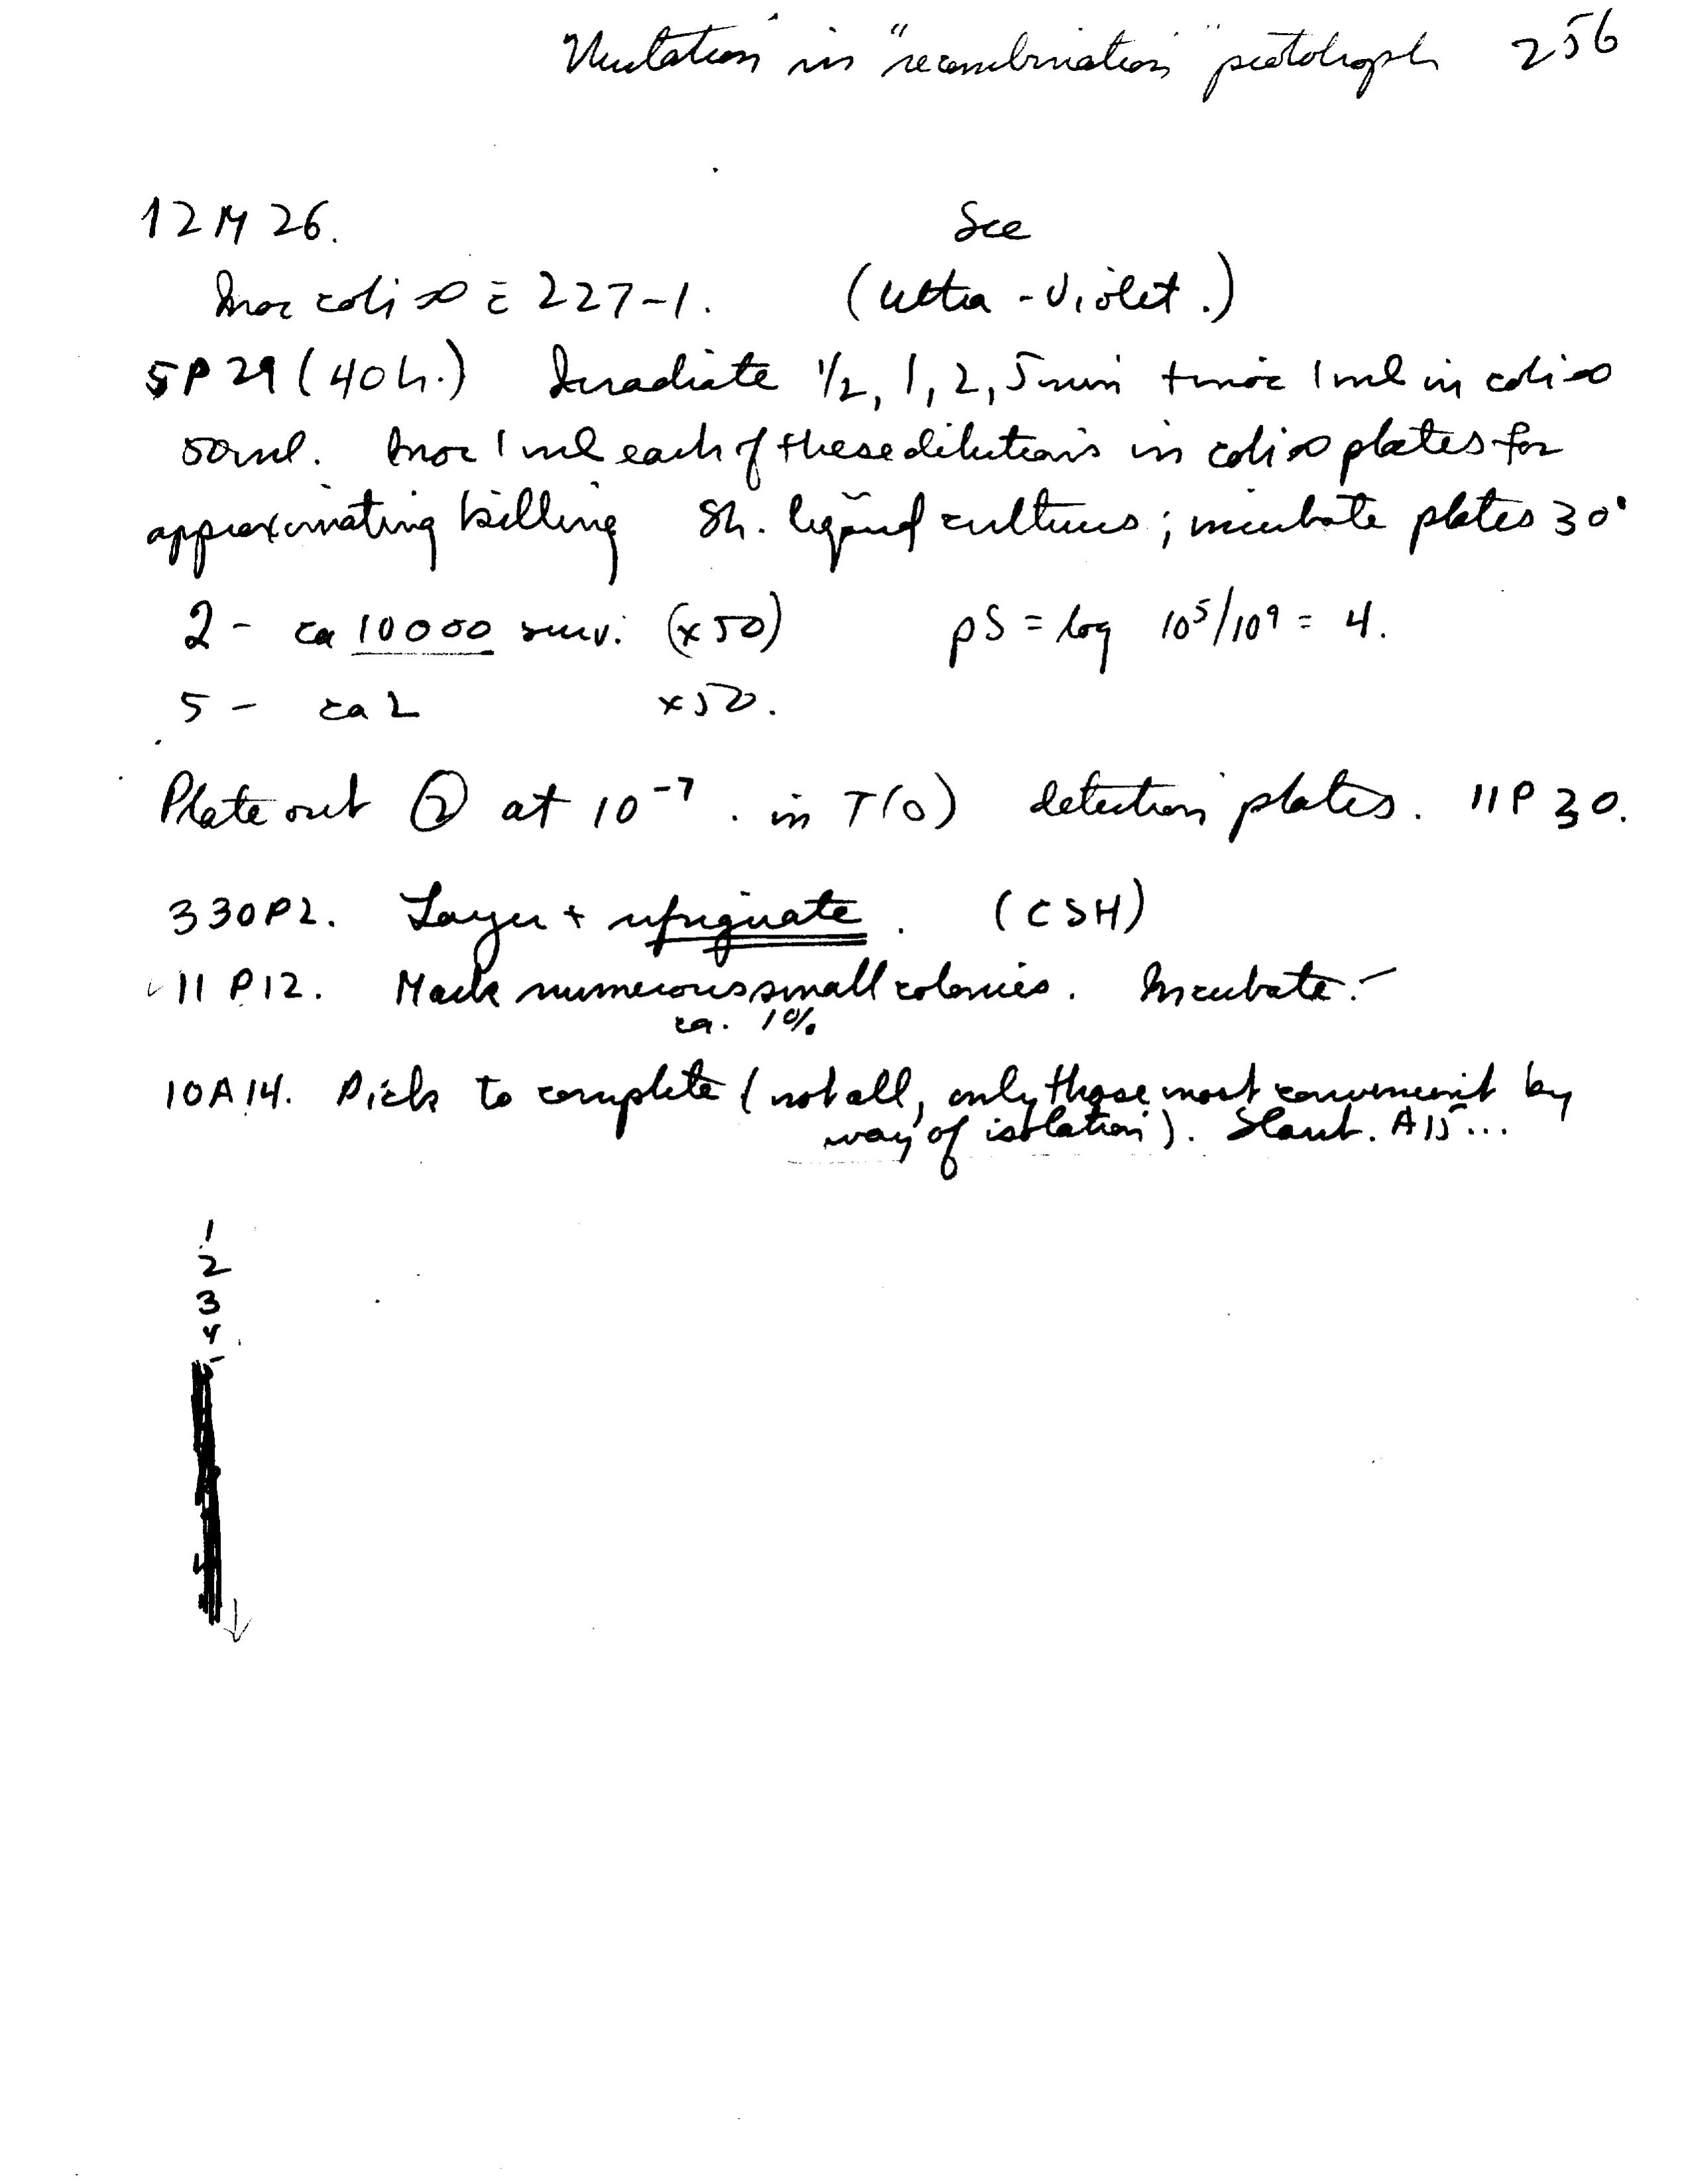 Mutation in "recombination" prototroph 256
12 M 26. See
Inoc coli ∞ c̄ 227-1. (Ultra-Violet.)
5P29 (40h.) Irradiate 1/2, 1, 2, 5 min + inoc 1 ml in coli ∞
50 ml. Inoc 1 ml each of these dilutions in coli ∞ plates for
approximating killing Sh. liquid cultures; incubate plates 30°
2 - ca 10000 surv. (x50) pS = log 10⁵/10⁹ = 4.
5 - ca 2 x50.
Plate out ② at 10⁻⁷. in T(0) detection plates. 11P30.
330P2. Layer + refrigerate. (CSH)
11P12. Mark numerous small colonies. Incubate.-
ca. 1%
10A14. Pick to complete (not all, only those most convenient by
way of isolation). Slant. A15...
1
2
3
4
5